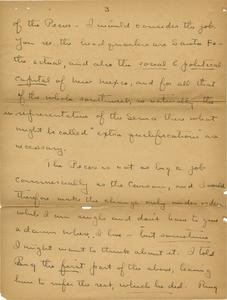 3
of the Pecos - I would consider the job.
You see, the head quarters are Santa Fe -
the actual, and also the social & political
capital of New Mexico, and for all that
of the whole southwest, so naturally the
representative of the Service there what
might be called "extra qualifications" are
necessary.
The Pecos is not as big a job
commercially as the Carson, and I would
therefore make the change only under orders
while I am single and don't have to give
a damn where I live - but sometime
I might want to think about it. I told
Ring the first part of the above, leaving
him to infer the rest, which he did. Ring